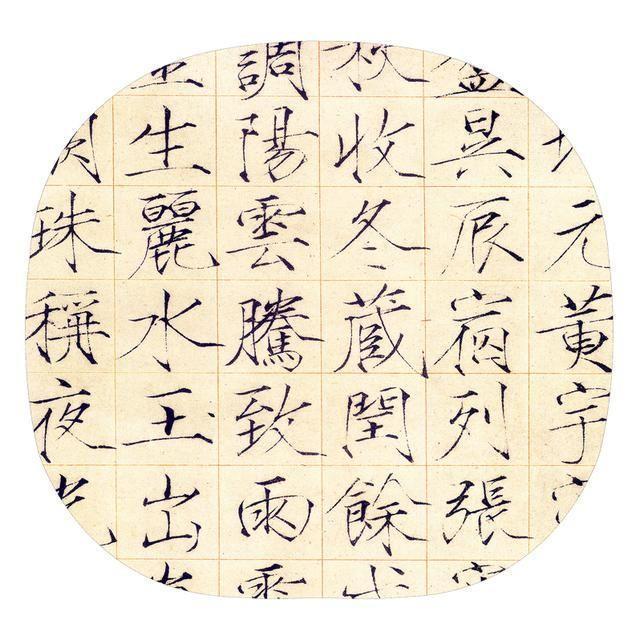 元黄宇
盈昃辰宿列張
秋收冬藏閏餘
調陽雲騰致雨露
生麗水玉出
珠稱夜光